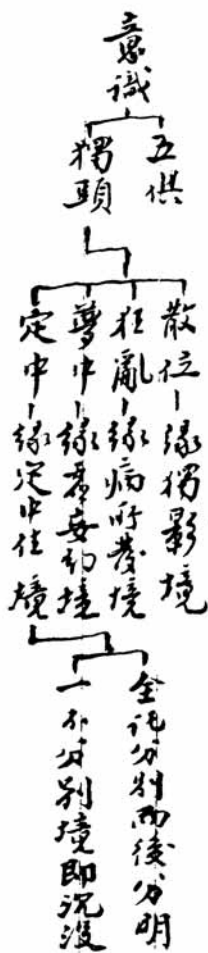 意識
五俱
獨頭
散位-緣獨影境
狂亂-緣病所發境
夢中-緣虛妄幻境
定中-緣定中佳境
全託分別而後分明
一不分別境即沉沒